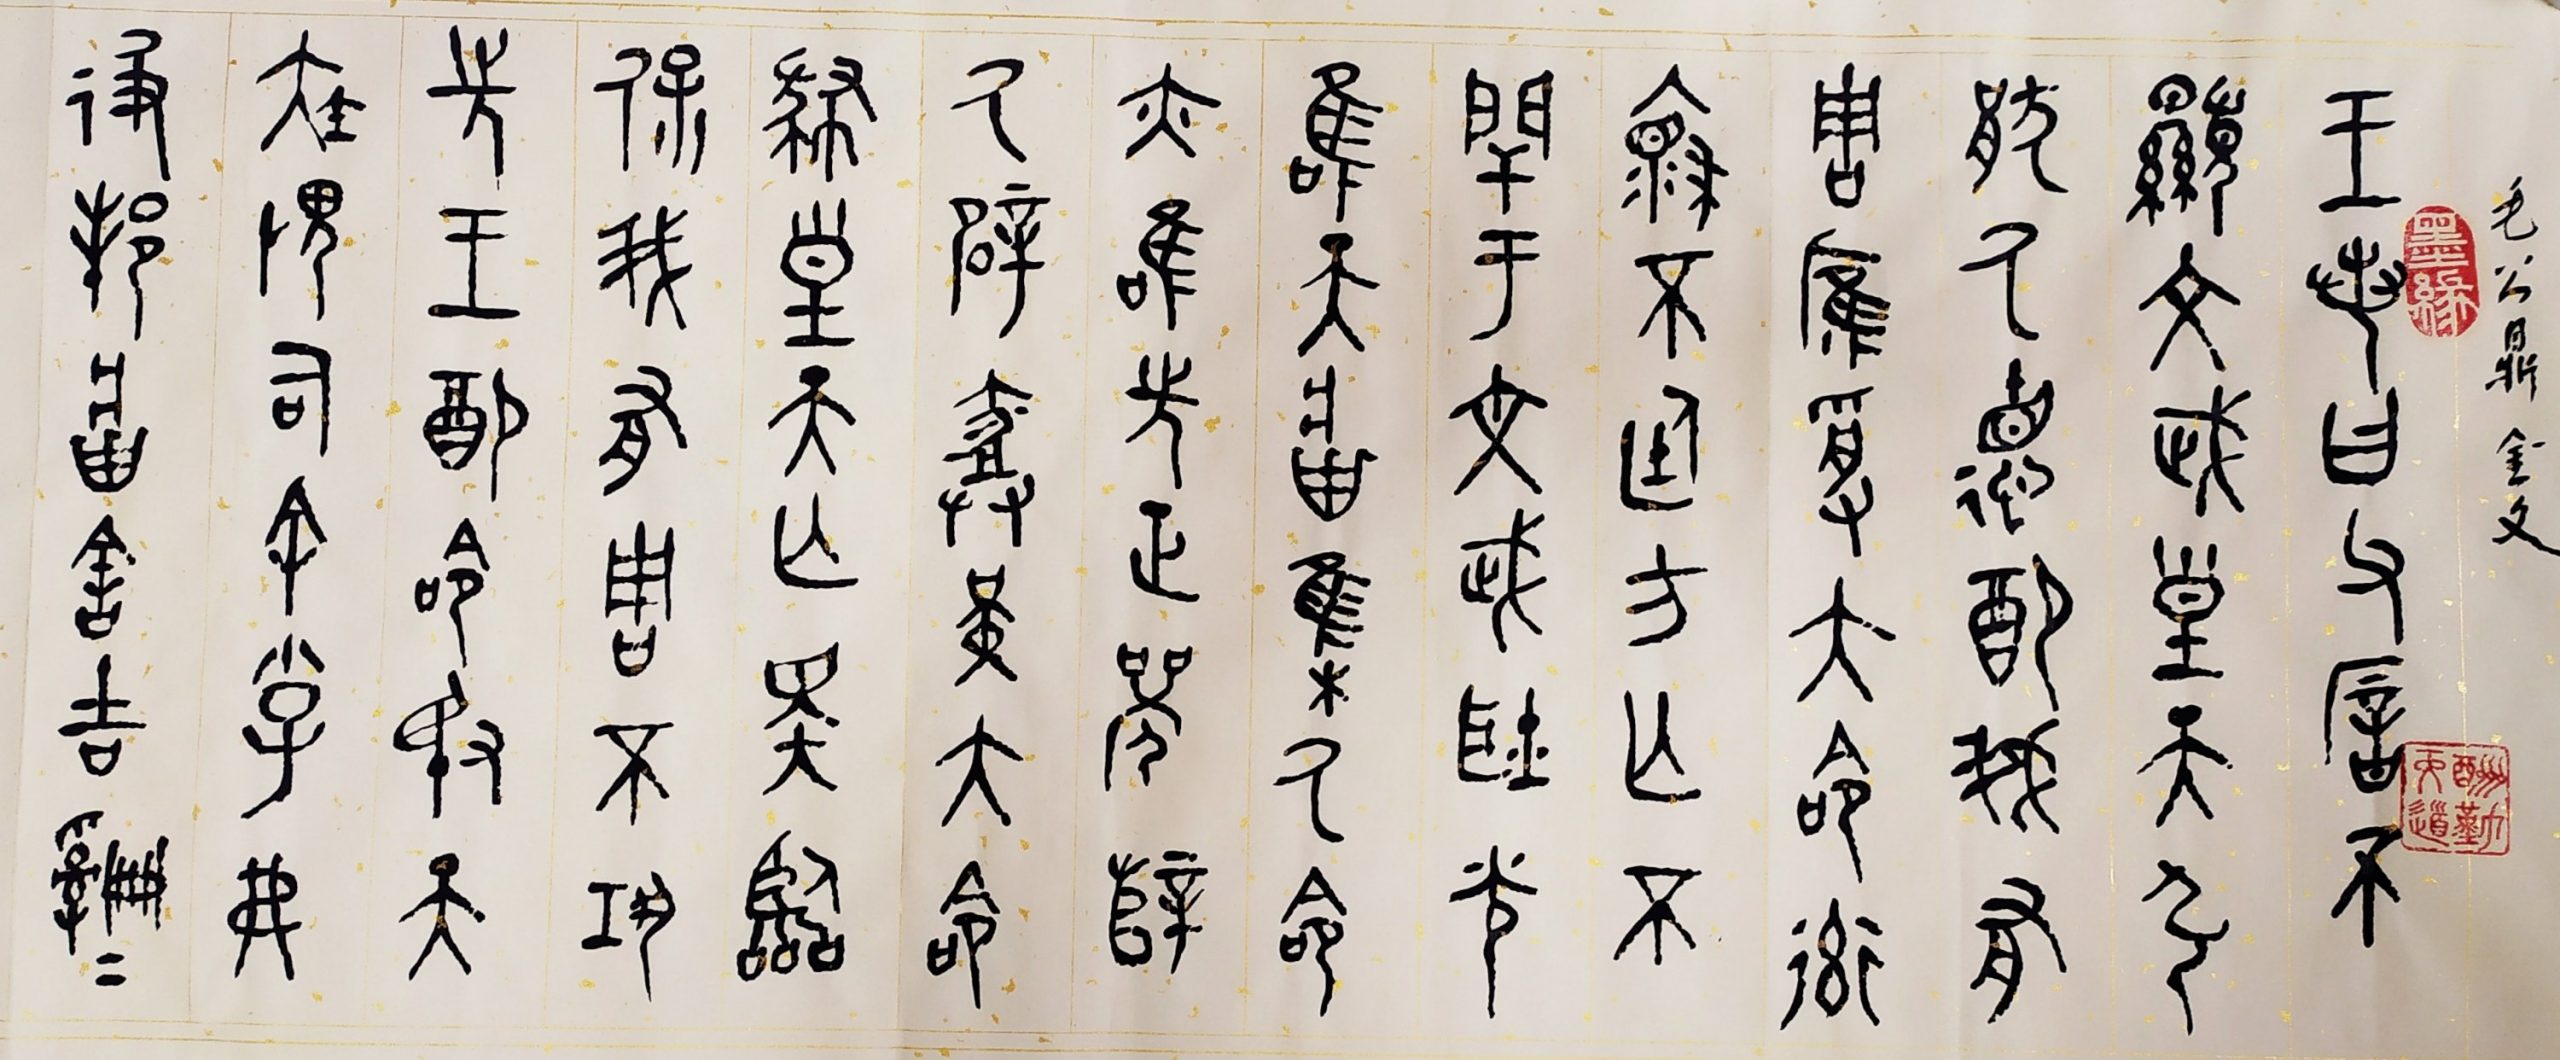 毛公鼎 金文
墨緣
天道酬勤
王若曰父㕌不
顯文武皇天引
猒氒德配我有
周雁受大命率
褱不廷方亡不
閈于文武耿光
唯天𤖕集氒命
亦唯先正辥
氒辟堇大命
肆皇天亡斁臨
保我有周不巩
先王配命敃天
疾畏司余小子弗
彶邦𤖕害吉